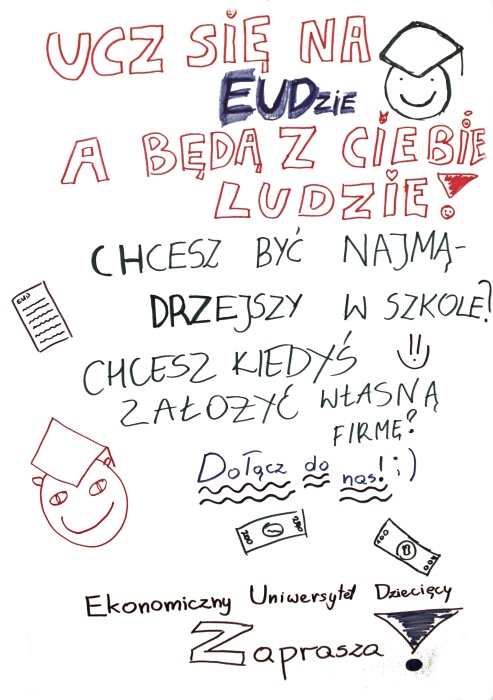 UCZ SIĘ NA
EUDZIE
A BĘDĄ Z CIEBIE
LUDZIE!
CHCESZ BYĆ NAJMĄ-
DRZEJSZY W SZKOLE?
EUD
!!
CHCESZ KIEDYŚ
ZAŁOZYĆ WŁASNĄ
FIRMĘ?
Dołącz do nas! ;)
200 200
100 100
Ekonomiczny Uniwersytet Dziecięcy
Zaprasza!